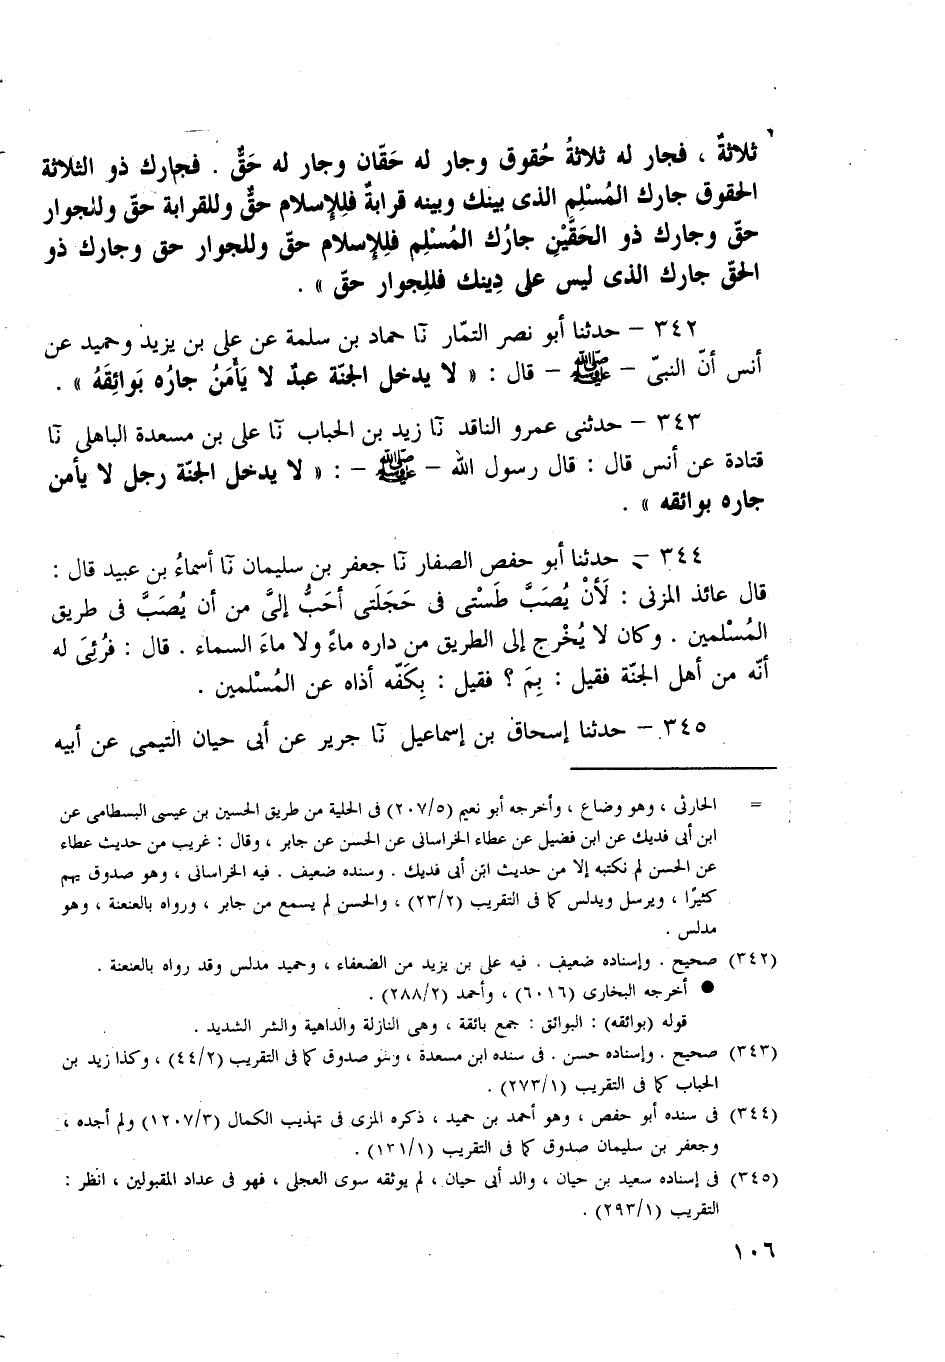 ثلاثةٌ ، فجار له ثلاثةُ حُقوق وجار له حَقّان وجار له حَقٌّ . فجارك ذو الثلاثة
الحقوق جارك المُسْلِم الذى بينك وبينه قرابةٌ فلِلإسلام حقٌّ وللقرابة حقّ وللجوار
حقّ وجارك ذو الحَقَّيْنِ جارُك المُسْلِم فلِلإسلام حقّ وللجوار حق وجارك ذو
الحقّ جارك الذى ليس على دِينك فللِجوار حقّ » .
٣٤٢ – حدثنا أبو نصر التمّار نَا حماد بن سلمة عن على بن يزيد وحميد عن
أنس أنّ النبىّ – ﷺ – قال : « لا يدخل الجنّة عبدٌ لا يَأْمَنُ جارُه بَوائِقَهُ » .
٣٤٣ – حدثنى عمرو الناقد نَا زيد بن الحباب نَا على بن مسعدة الباهلى نَا
قتادة عن أنس قال : قال رسول الله – ﷺ – : « لا يدخل الجنّة رجل لا يأمن
جاره بوائقه » .
٣٤٤ – حدثنا أبو حفص الصفار نَا جعفر بن سليمان نَا أسماءُ بن عبيد قال :
قال عائذ المزنى : لَأنْ يُصَبَّ طَسْتى فى حَجَلَتى أحَبُّ إلىَّ من أن يُصَبَّ فى طريق
المُسْلمين . وكان لا يُخْرج إلى الطريق من داره ماءً ولا ماءَ السماء . قال : فرُئِىَ له
أنّه من أهل الجنّة فقيل : بِمَ ؟ فقيل : بِكَفّه أذاه عن المُسْلمين .
٣٤٥ – حدثنا إسحاق بن إسماعيل نَا جرير عن أبى حيان التيمى عن أبيه
= الحارثى ، وهو وضاع ، وأخرجه أبو نعيم (٢٠٧/٥) فى الحلية من طريق الحسين بن عيسى البسطامى عن
ابن أبى فديك عن ابن فضيل عن عطاء الخراسانى عن الحسن عن جابر ، وقال : غريب من حديث عطاء
عن الحسن لم نكتبه إلا من حديث ابن أبى فديك . وسنده ضعيف . فيه الخراسانى ، وهو صدوق يهم
كثيرًا ، ويرسل ويدلس كما فى التقريب (٢٣/٢) ، والحسن لم يسمع من جابر ، ورواه بالعنعنة ، وهو
مدلس .
(٣٤٢) صحيح . وإسناده ضعيف . فيه على بن يزيد من الضعفاء ، وحميد مدلس وقد رواه بالعنعنة .
● أخرجه البخارى (٦٠١٦) ، وأحمد (٢٨٨/٢) .
قوله (بوائقه) : البوائق : جمع بائقة ، وهى النازلة والداهية والشر الشديد .
(٣٤٣) صحيح . وإسناده حسن . فى سنده ابن مسعدة ، وهو صدوق كما فى التقريب (٤٤/٢) ، وكذا زيد بن
الحباب كما فى التقريب (٢٧٣/١) .
(٣٤٤) فى سنده أبو حفص ، وهو أحمد بن حميد ، ذكره المزى فى تهذيب الكمال (١٢٠٧/٣) ولم أجده ،
وجعفر بن سليمان صدوق كما فى التقريب (١٣١/١) .
(٣٤٥) فى إسناده سعيد بن حيان ، والد أبى حيان ، لم يوثقه سوى العجلى ، فهو فى عداد المقبولين ، انظر :
التقريب (٢٩٣/١) .
١٠٦